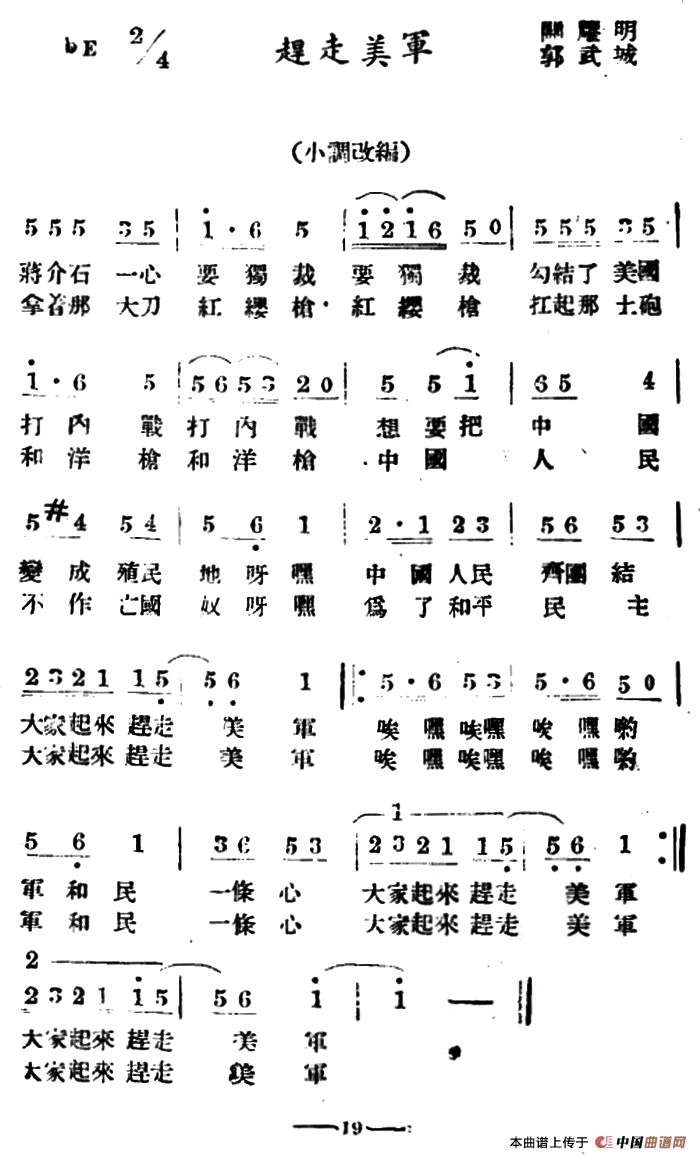 bE 2/4 趕走美軍 關耀明
郭武城
(小調改編)
5 5 5 3 5 | 1 · 6 5 | 1 2 1 6 5 0 | 5 5 5 3 5 |
蔣介石一心 要獨裁 要獨裁 勾結了美國
拿着那大刀 紅纓槍 紅纓槍 扛起那土砲
1 · 6 5 | 5 6 5 3 2 0 | 5 5 1 | 6 5 4 |
打內戰 打內戰 想要把 中國
和洋槍 和洋槍 中國 人民
5 #4 5 4 | 5 6 1 | 2 · 1 2 3 | 5 6 5 3 |
變成殖民 地呀嘿 中國人民 齊團結
不作亡國 奴呀嘿 爲了和平 民主
2 3 2 1 1 5 | 5 6 1 |: 5 · 6 5 3 | 5 · 6 5 0 |
大家起來趕走 美軍 唉嘿唉嘿 唉嘿喲
大家起來趕走 美軍 唉嘿唉嘿 唉嘿喲
1
5 6 1 | 3 6 5 3 | 2 3 2 1 1 5 | 5 6 1 :|
軍和民 一條心 大家起來趕走 美軍
軍和民 一條心 大家起來趕走 美軍
2
2 3 2 1 1 5 | 5 6 1 | 1 — ||
大家起來趕走 美軍
大家起來趕走 美軍
— 19 —
本曲谱上传于 中国曲谱网